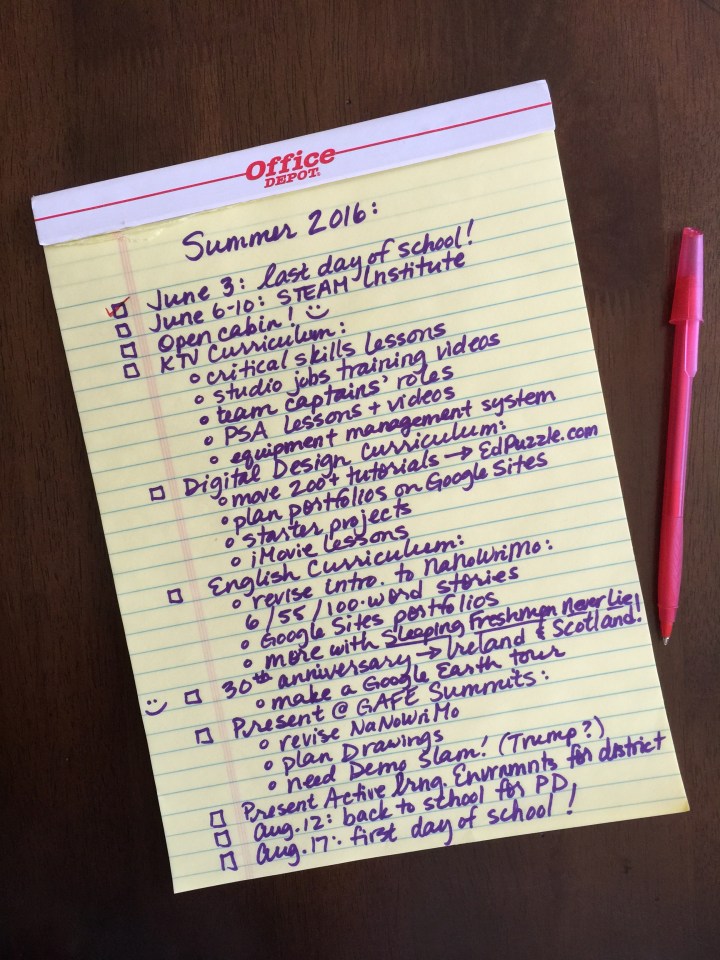 Office
DEPOT
Summer 2016:
June 3: last day of school!
June 6-10: STEAM Institute
Open cabin!
KTV Curriculum:
critical skills lessons
studio jobs training videos
team captains' roles
PSA lessons + videos
equipment management system
Digital Design Curriculum:
move 200+ tutorials → EdPuzzle.com
plan portfolios on Google Sites
starter projects
iMovie lessons
English Curriculum:
revise intro. to NaNoWriMo:
6/55/100-word stories
Google Sites portfolios
more with Sleeping Freshmen Never Lie!
30th anniversary → Ireland & Scotland!
make a Google Earth tour
Present @ GAFE Summits:
revise NaNoWriMo
plan Drawings
need Demo Slam! (Trump?)
Present Active lrng. Envrnmnts for district
Aug. 12: back to school for PD
Aug. 17: first day of school!